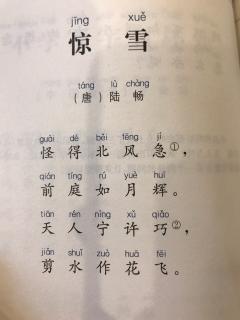 jīng xuě
惊雪
táng lù chàng
（唐）陆畅
guài dé běi fēng jí
怪得北风急①，
qián tíng rú yuè huī
前庭如月辉。
tiān rén nìng xǔ qiǎo
天人宁许巧②，
jiǎn shuǐ zuò huā fēi
剪水作花飞。